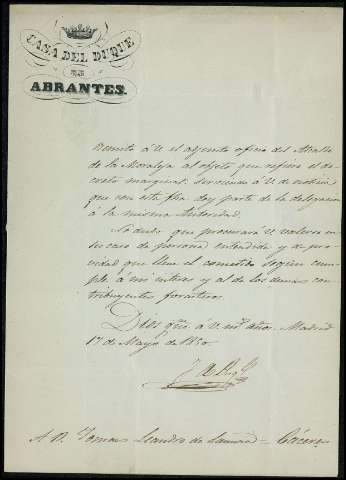 CASA DEL DUQUE
DE
ABRANTES.
Remito á V. el adjunto oficio del Alcalde
de la Moraleja al objeto que refiere el de-
creto marginal; sirviendo á V. de
que con esta fha. doy parte de la delegacion
á la misma Autoridad.
No dudo que procurará V. valerse en
su caso de persona entendida y de pro-
vidad que llene el cometido segun cum-
ple á mis intereses y al de los demas con-
tribuyentes forasteros.
Dios gue. á V. ms. años. Madrid
17 de Mayo de 1850
A D. Tomas Leandro de = Cáceres